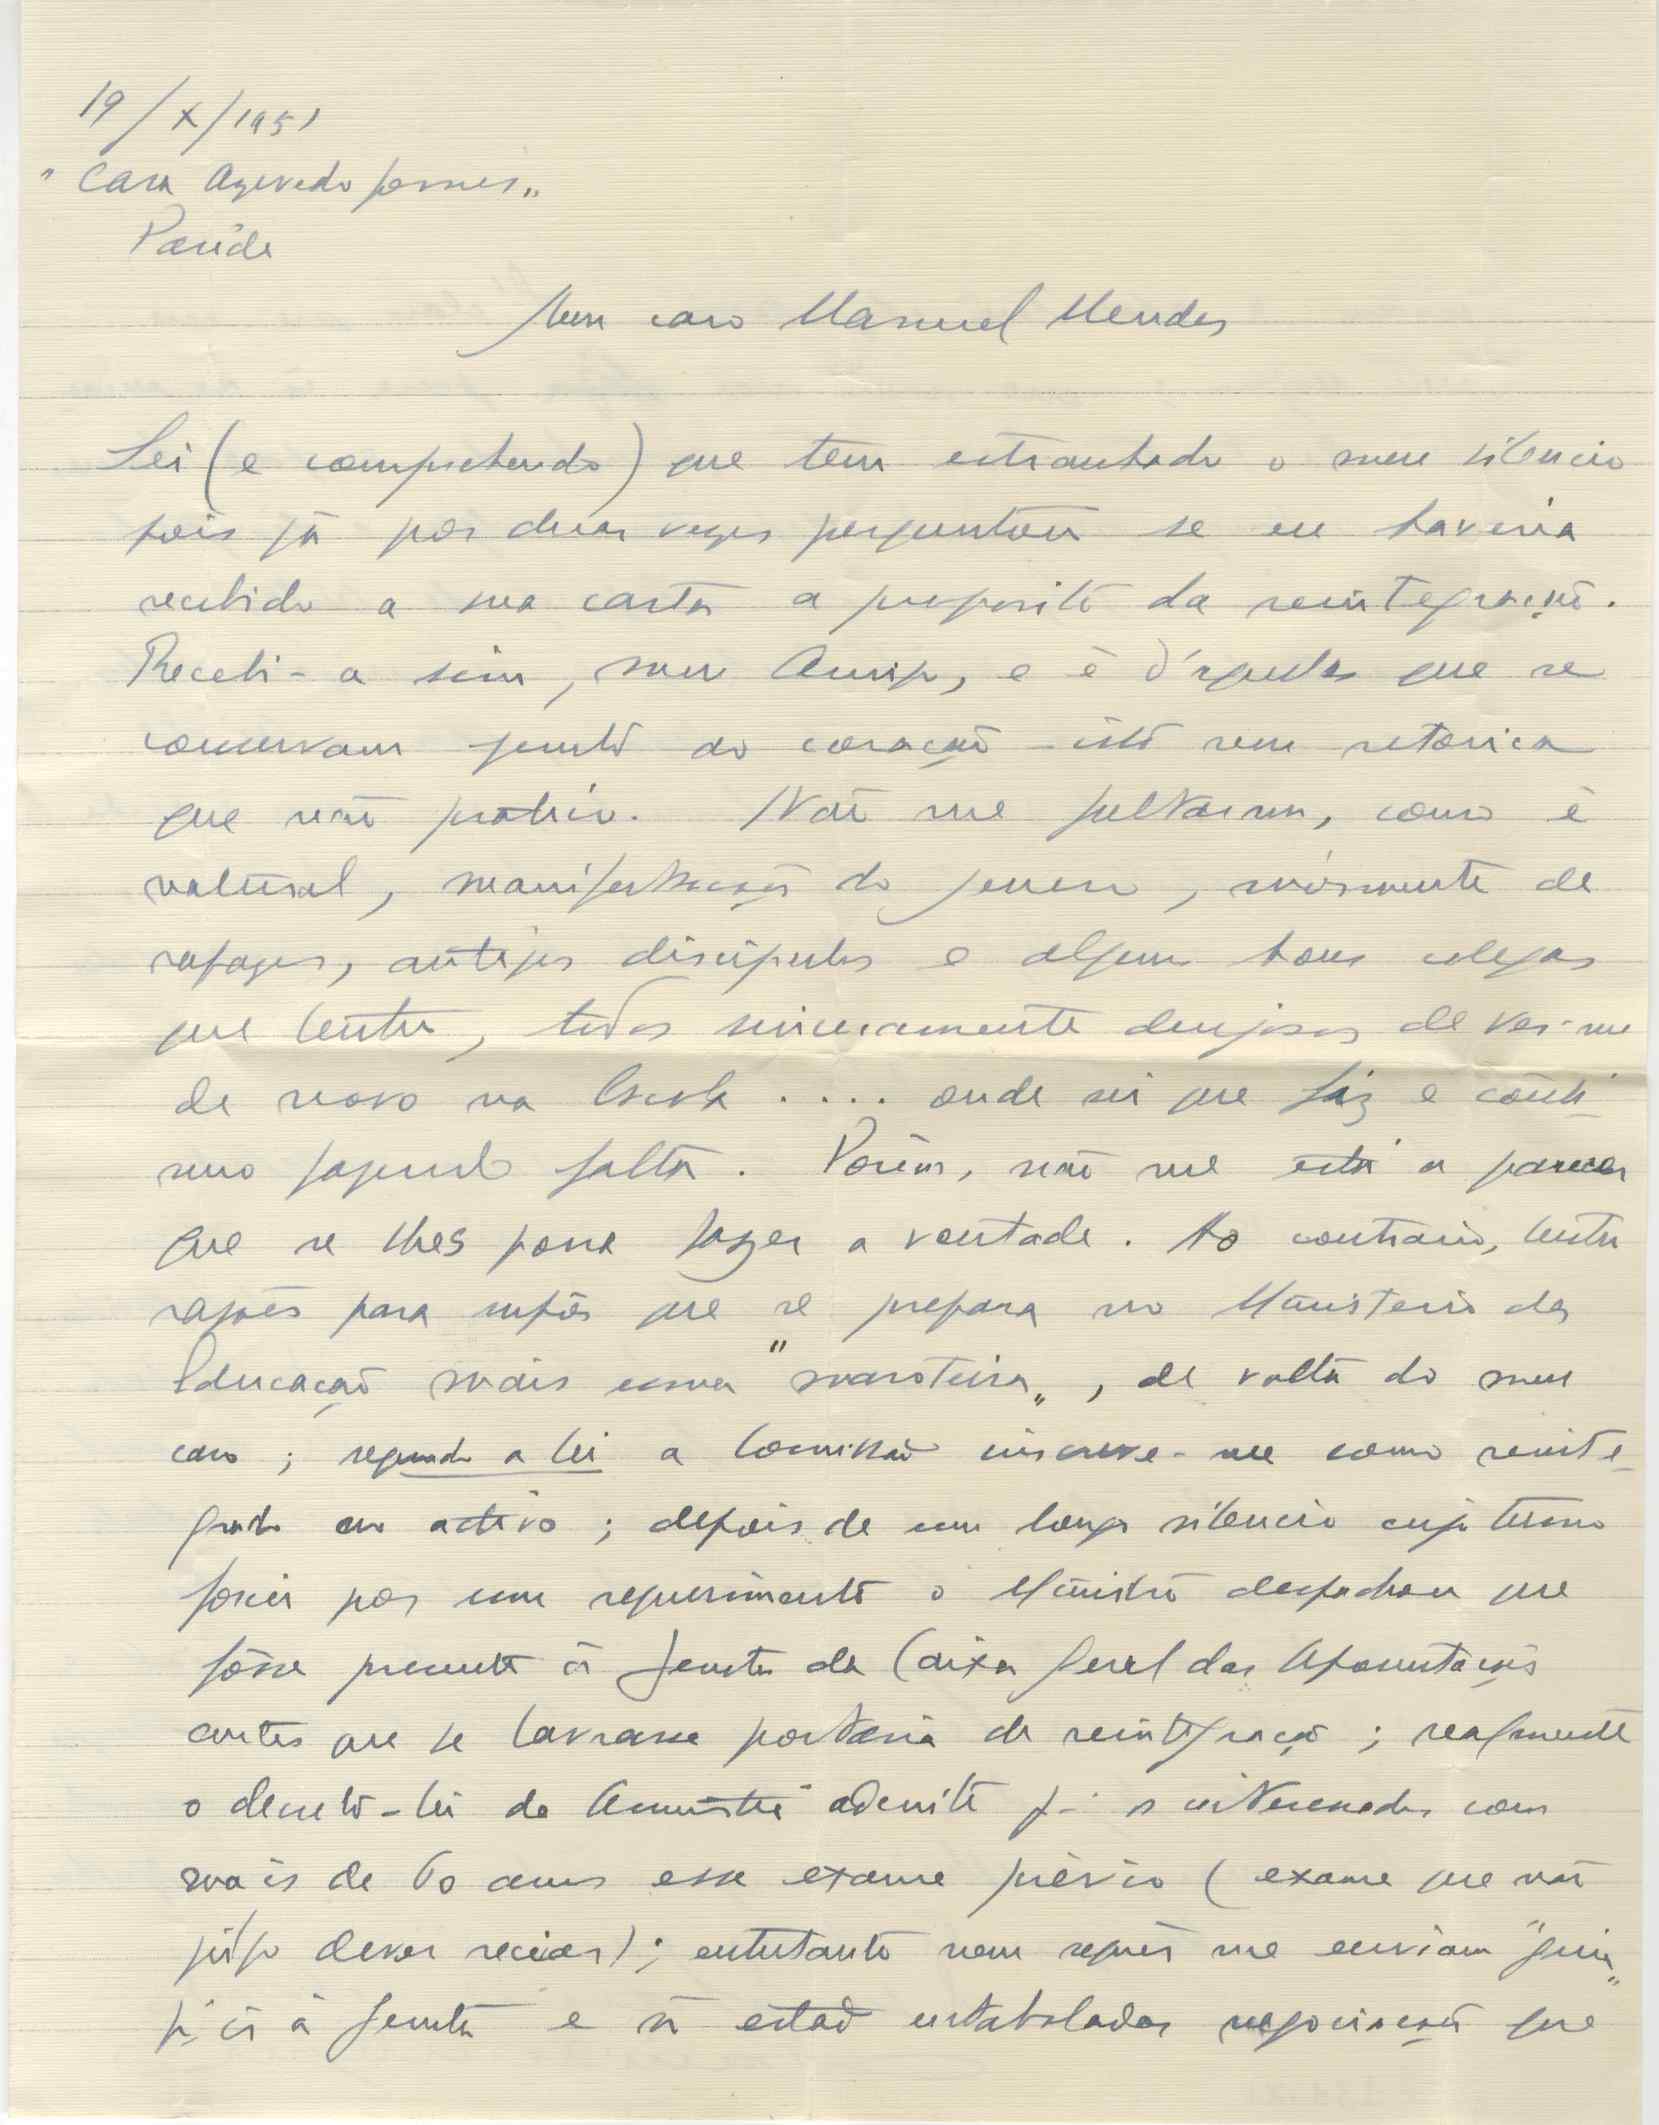 19/X/1951
"Casa Azevedo Gomes"
Parede
Meu caro Manuel Mendes
Sei (e comprehendo) que tem estranhado o meu silencio
pois já por duas vezes perguntou se eu haveria
recebido a sua carta a proposito da reintegração.
Recebi-a sim, meu Amigo, e é d'aquelas que se
conservam junto do coração - isto sem retorica
que não pratico. Não me faltaram, como é
natural, manifestações do genero, mórmente de
rapazes, antigos discipulos e alguns bons colegas
que tenho, todos sinceramente desejosos de ver-me
de novo na Escola .... onde sei que fiz e conti-
nuo fazendo falta. Porém, não me está a parecer
que se lhes possa fazer a vontade. Ao contrario, tenho
razões para supôr que se prepara no Ministerio da
Educação mais uma "maroteira", de volta do meu
caso ; segundo a lei a Comissão inscreve-me como reinte-
grado no activo ; depois de um longo silencio cujo termo
forcei por um requerimento o Ministro despachou que
fôsse presente á Junta da Caixa Geral das Aposentações
antes que se lavrasse portaria de reintegração ; realmente
o decreto-lei da Amnistia admite p.ª os interessados com
mais de 60 anos esse exame prévio (exame que não
julgo dever recear) ; entretanto nem sequer me enviam "guia"
p.ª ir á Junta e já estão entaboladas negociações que